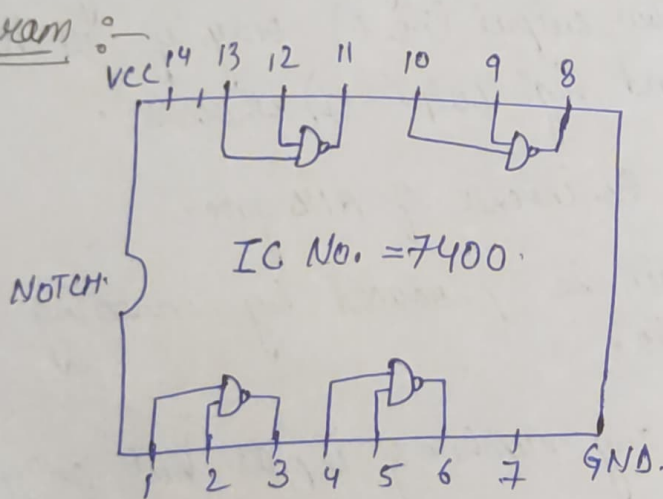 ram :-
VCC 14 13 12 11 10 9 8
IC No. =7400.
NOTCH.
1 2 3 4 5 6 7 GND.